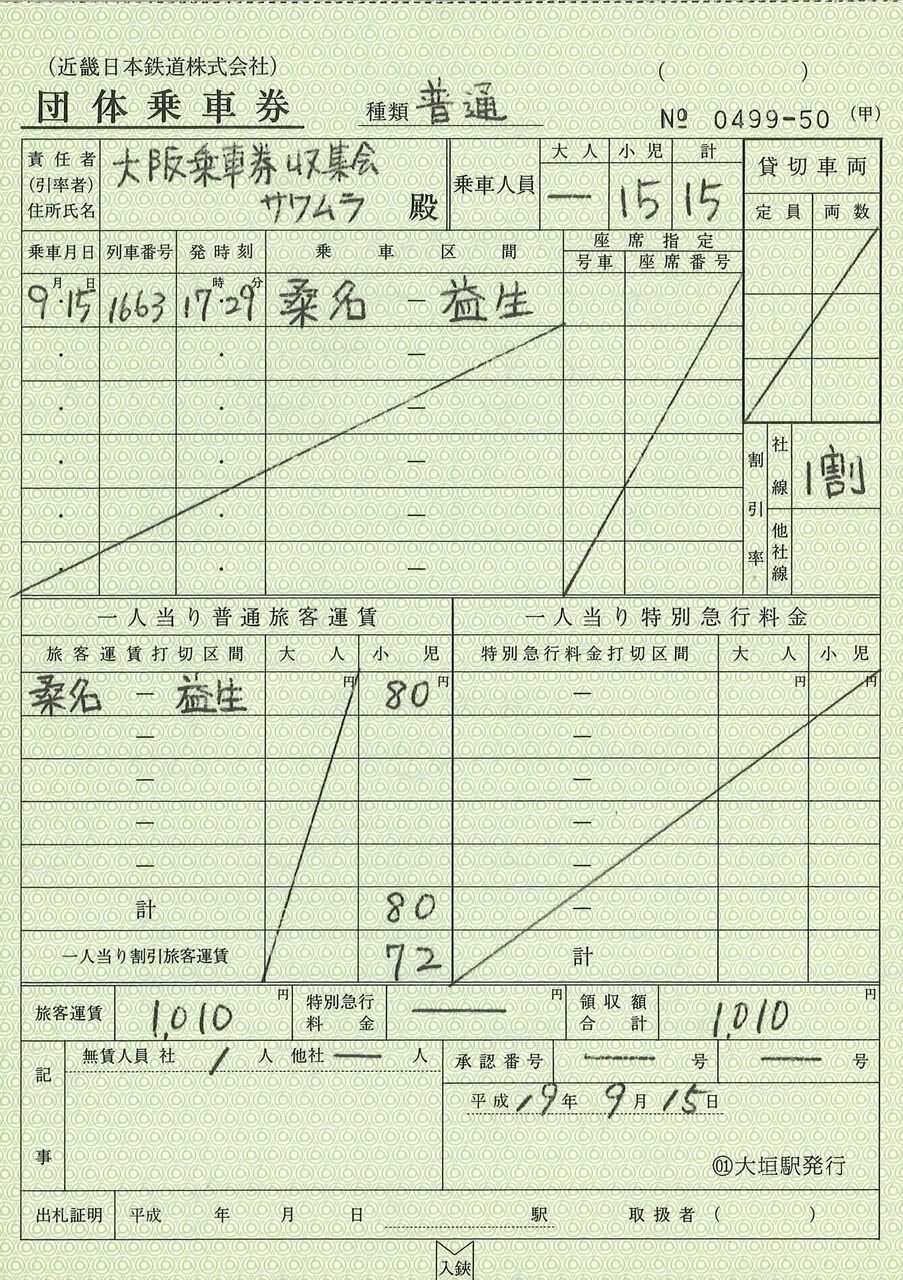 (近畿日本鉄道株式会社) ( )
団体乗車券 種類 普通 № 0499-50 (甲)
責任者 (引率者) 住所氏名 大阪乗車券収集会 サワムラ 殿
乗車人員 大人 小児 計
— 15 15
貸切車両
定員 両数
乗車月日 列車番号 発時刻 乗車区間 座席指定
号車 座席番号
9月・15日 1663 17時・29分 桑名 — 益生
・ ・ —
・ ・ —
・ ・ —
・ ・ —
・ ・ —
割引率 社線 1割
他社線
一人当り普通旅客運賃 一人当り特別急行料金
旅客運賃打切区間 大人 小児 特別急行料金打切区間 大人 小児
桑名 — 益生 円 80円 — 円 円
— —
— —
— —
— —
計 80 —
一人当り割引旅客運賃 72 計
旅客運賃 1,010円 特別急行料金 — 円 領収額合計 1,010円
記事 無賃人員 社 1 人 他社 — 人 承認番号 — 号 — 号
平成19年9月15日
㊀大垣駅発行
出札証明 平成 年 月 日 駅 取扱者 ( )
入鋏